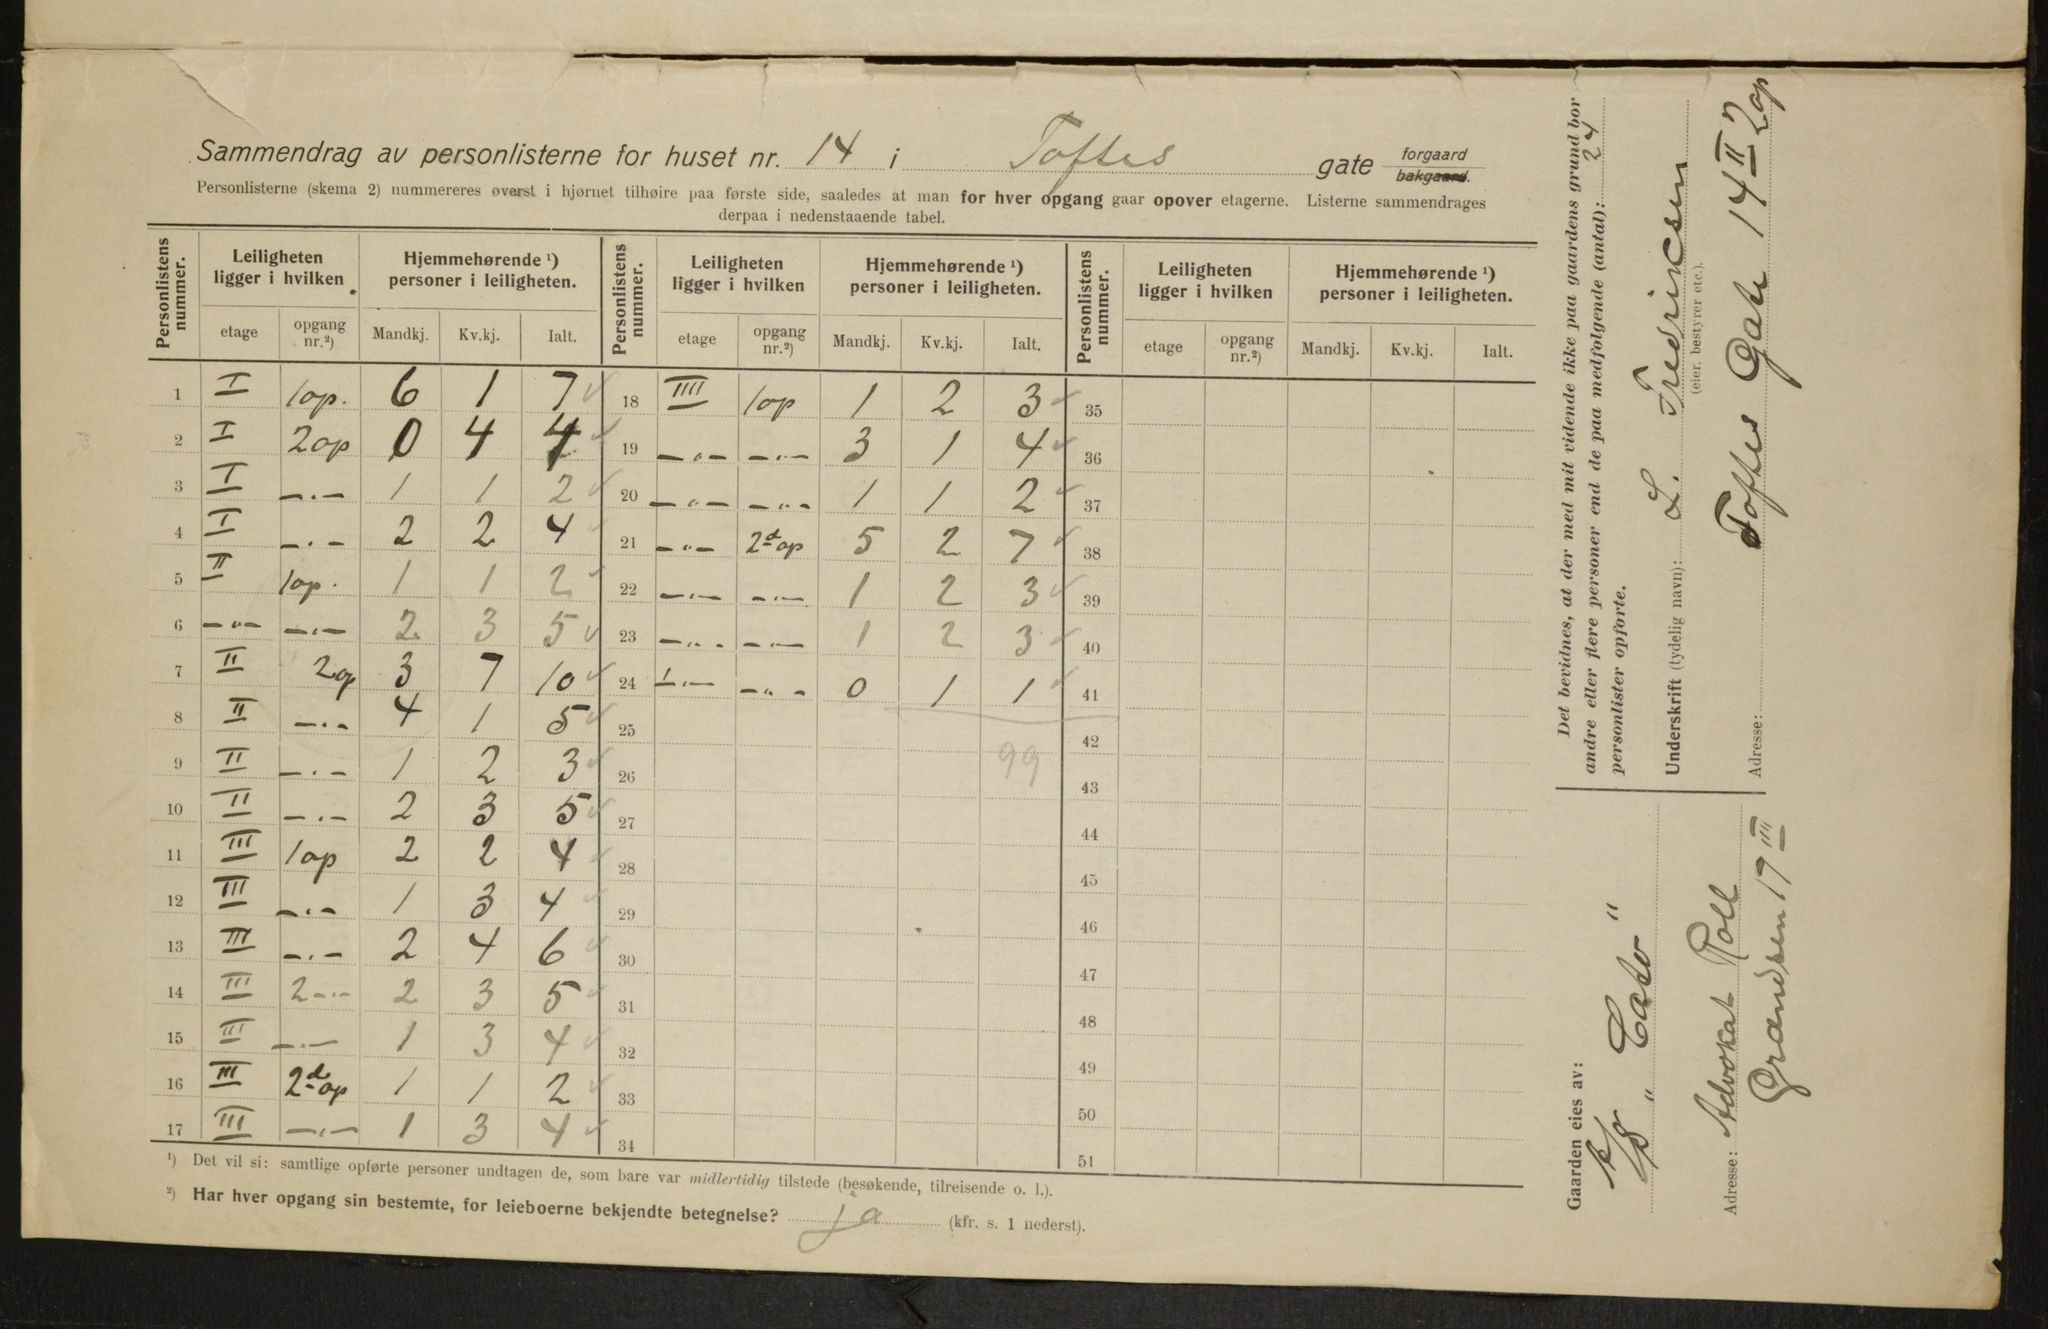 Sammendrag av personlisterne for huset nr. 14 i Toftes gate forgaard bakgaard.
Personlisterne (skema 2) nummereres øverst i hjørnet tilhøire paa første side, saaledes at man for hver opgang gaar opover etagerne. Listerne sammendrages
derpaa i nedenstaaende tabel.
Personlistens nummer. Leiligheten ligger i hvilken Hjemmehørende ¹) personer i leiligheten. Personlistens nummer. Leiligheten ligger i hvilken Hjemmehørende ¹) personer i leiligheten. Personlistens nummer. Leiligheten ligger i hvilken Hjemmehørende ¹) personer i leiligheten.
etage opgang nr.²) Mandkj. Kv.kj. Ialt. etage opgang nr.²) Mandkj. Kv.kj. Ialt. etage opgang nr.²) Mandkj. Kv.kj. Ialt.
1 I 1 op. 6 1 7 18 IIII 1 op 1 2 3 35
2 I 2 op 0 4 4 19 —„— —„— 3 1 4 36
3 I —„— 1 1 2 20 —„— —„— 1 1 2 37
4 I —„— 2 2 4 21 —„— 2d op 5 2 7 38
5 II 1 op. 1 1 2 22 —„— —„— 1 2 3 39
6 —„— —„— 2 3 5 23 —„— —„— 1 2 3 40
7 II 2 op 3 7 10 24 —„— —„— 0 1 1 41
8 II —„— 4 1 5 25 42
9 II —„— 1 2 3 26 99 43
10 II —„— 2 3 5 27 44
11 III 1 op 2 2 4 28 45
12 III —„— 1 3 4 29 46
13 III —„— 2 4 6 30 47
14 III 2 —„— 2 3 5 31 48
15 III —„— 1 3 4 32 49
16 III 2d op 1 1 2 33 50
17 III —„— 1 3 4 34 51
¹) Det vil si: samtlige opførte personer undtagen de, som bare var midlertidig tilstede (besøkende, tilreisende o. l.).
²) Har hver opgang sin bestemte, for leieboerne bekjendte betegnelse? ja (kfr. s. 1 nederst).
Det bevidnes, at der med mit vidende ikke paa gaardens grund bor
andre eller flere personer end de paa medfølgende (antal): 24
personlister opførte.
Underskrift (tydelig navn): L. Fredricsen
(eier, bestyrer etc.).
Adresse: Toftes Gate 14 II 2 op
Gaarden eies av:
A/S „Cato"
Adresse: Advokat Roll
Grændsen 19 III